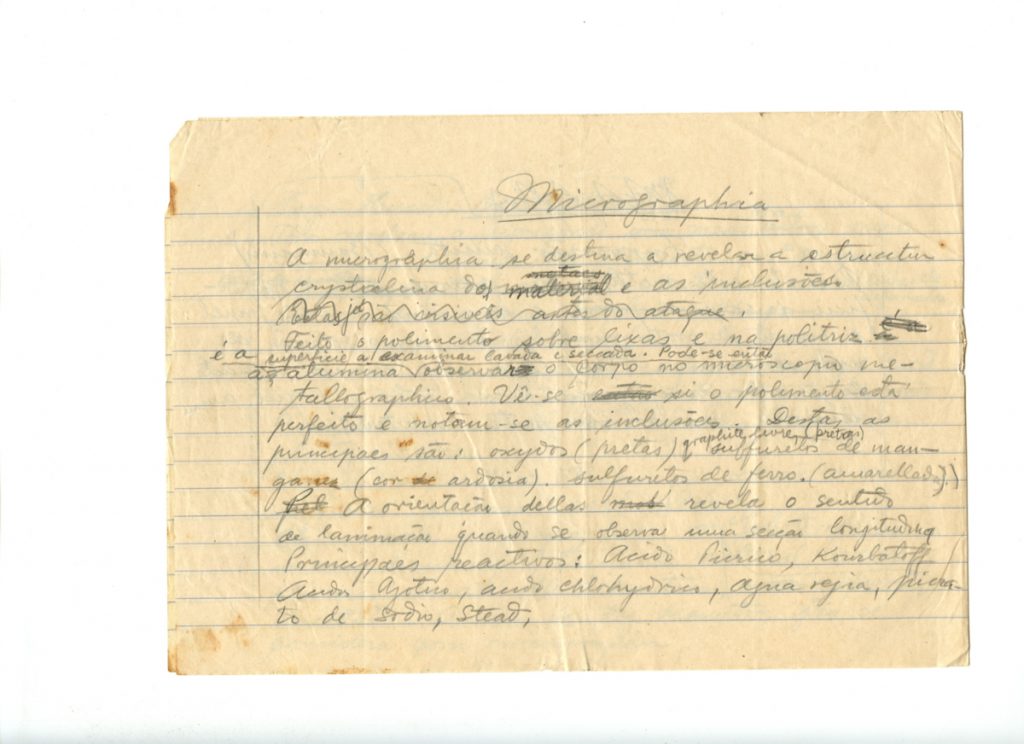 Micrographia
A micrographia se destina a revelar a estructura
metaes
crystalina do material e as inclusões.
Estas já são visiveis antes do ataque.
Feito o polimento sobre lixas e na politriz
é a superficie a examinar lavada e seccada. Pode-se então
alumina observar o corpo no microscopio me-
tallographico. Vê-se si o polimento está
perfeito e notam-se as inclusões. Destas as
graphite livre, (pretas)
principaes são: oxydos (pretas) sulfuretos de man-
ganez (cor de ardosia). sulfuretos de ferro. (amarellados).)
A orientação dellas revela o sentido
de laminação quando se observa uma secção longitudinal
Principaes reactivos: Acido Picrico, Kourbatoff
Acido Azotico, acido chlohydrico, agua regia, picra-
to de sodio, Stead,